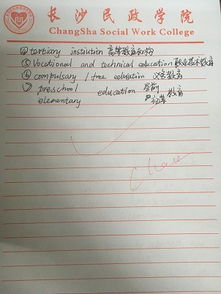 长沙民政学院
ChangSha Social Work College
④ tertiary institution 高等教育机构
⑤ Vocational and technical education 职业技术教育
⑥ compulsary / free education 义务教育
⑦ preschool education 学前教育
elementary 初等